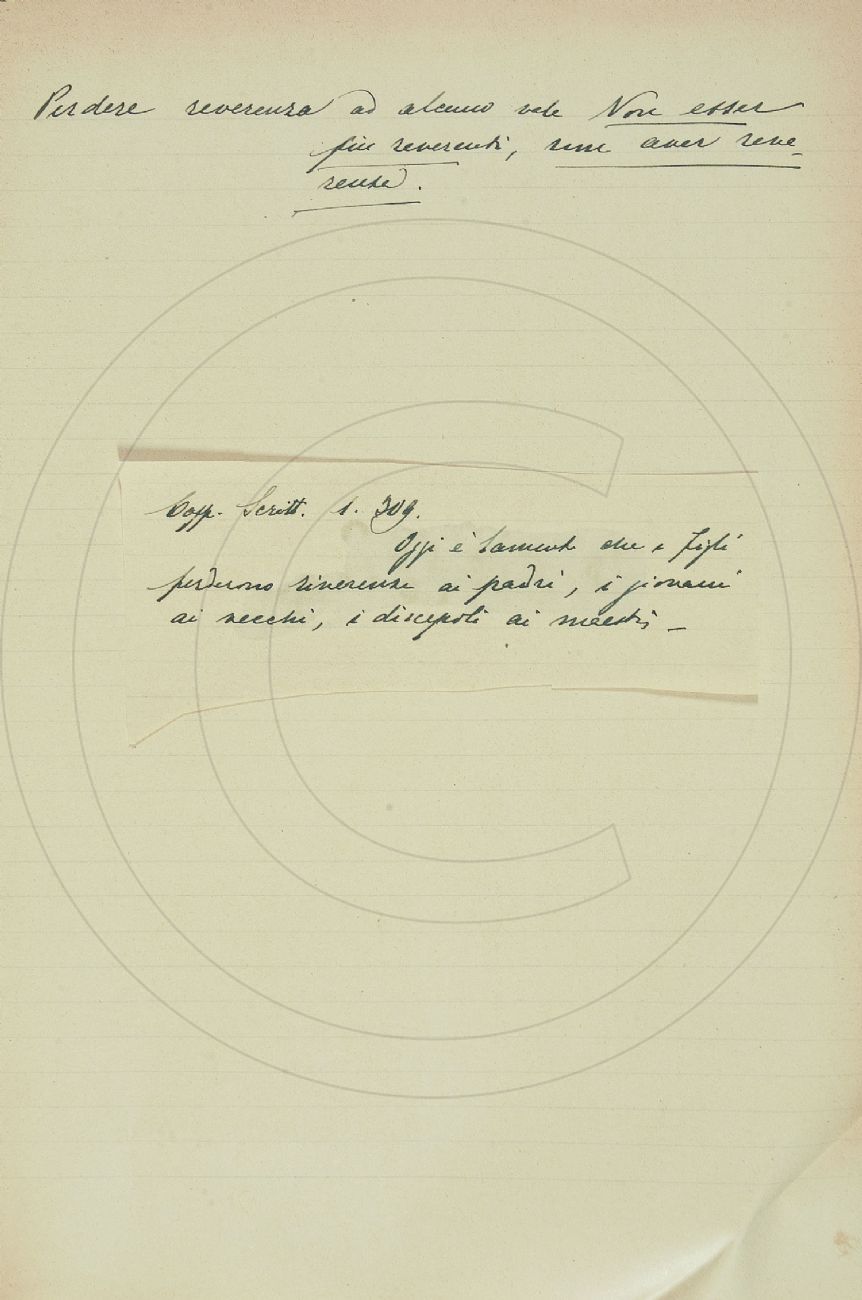 Perdere reverenza ad alcuno vale Non esser
più reverenti, non aver reve-
renza.
Capp. Scritt. 1. 309.
Oggi è lamento che i figli
perderono riverenza ai padri, i giovani
ai vecchi, i discepoli ai maestri _